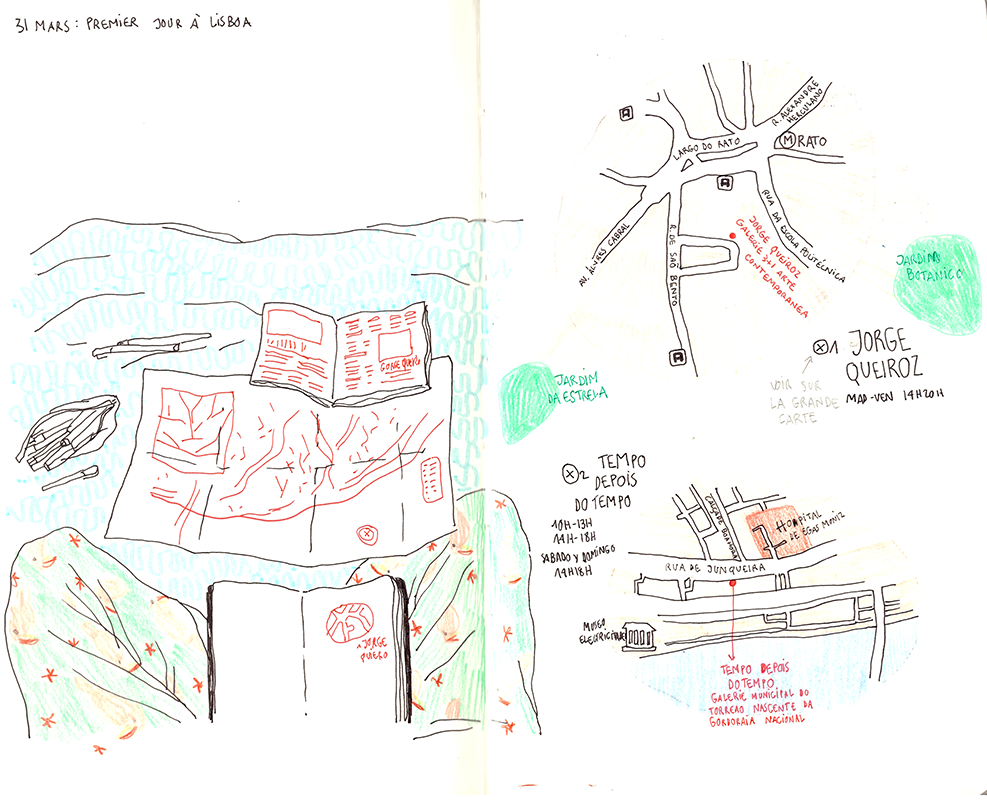 31 MARS : PREMIER JOUR À LISBOA
GONGE QUERO
1 JORGE
QUERO
R. ALEXANDRE
HERCULANO
M RATO
LARGO DO RATO
AV. ALVERS CABRAL
R. DE SAO BENTO
RUA DA ESCOLA POLITÉCNICA
JORGE QUEIROZ
GALERIE 3+1 ARTE
CONTEMPORANEA
JARDIM
BOTANICO
JARDIM
DA ESTRELA
X1 JORGE
QUEIROZ
MAD-VEN 14H20H
VOIR SUR
LA GRANDE
CARTE
X2 TEMPO
DEPOIS
DO TEMPO
10H-13H
14H-18H
SABADO Y DOMINGO
14H18H
CALÇADE BOAHORA
HOSPITAL
DE EGAS MONIZ
RUA DE JUNQUEIRA
MUSEO
TEMPO DEPOIS
DO TEMPO
GALERIE MUNICIPAL DO
TORREAO NASCENTE DA
GORDORAIA NACIONAL